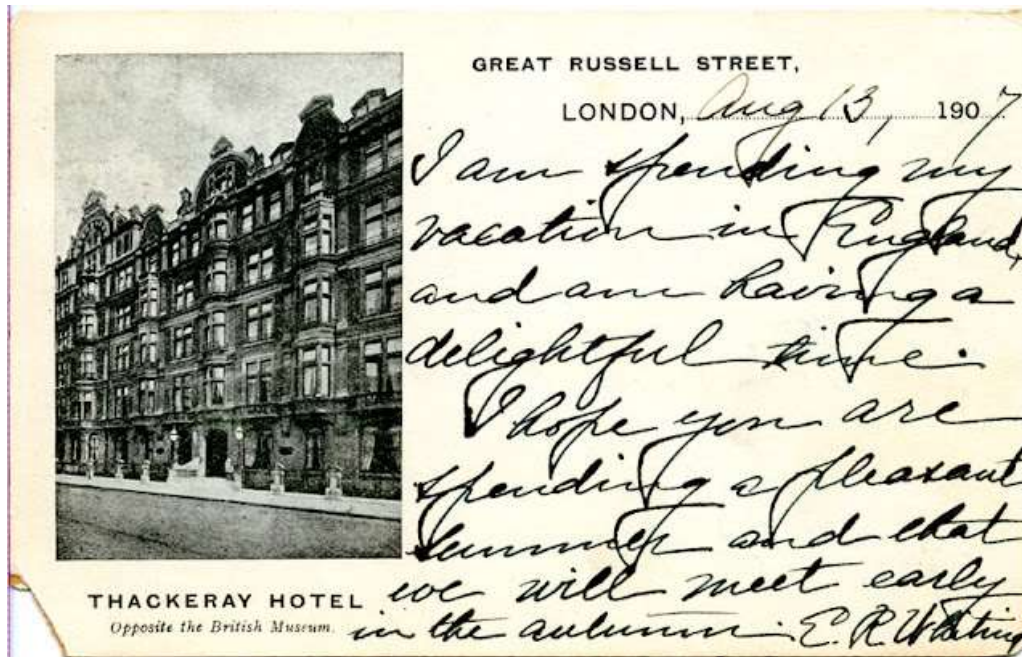 GREAT RUSSELL STREET,
LONDON, Aug 13, 1907
I am spending my
vacation in England,
and am having a
delightful time.
I hope you are
spending a pleasant
summer and that
we will meet early
in the autumn. E. R. Whiting
THACKERAY HOTEL
Opposite the British Museum.